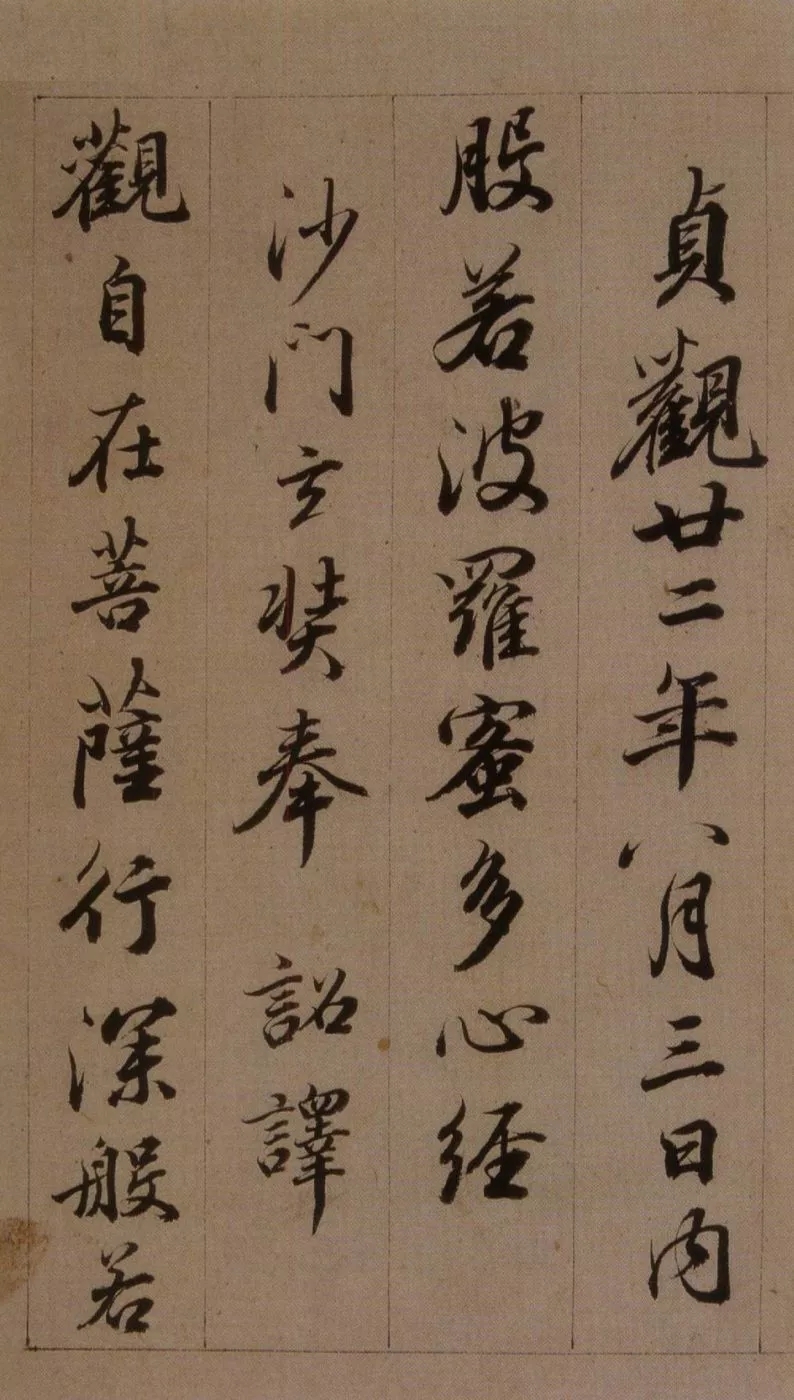 貞觀廿二年八月三日内
般若波羅蜜多心經
沙門玄奘奉 詔譯
觀自在菩薩行深般若